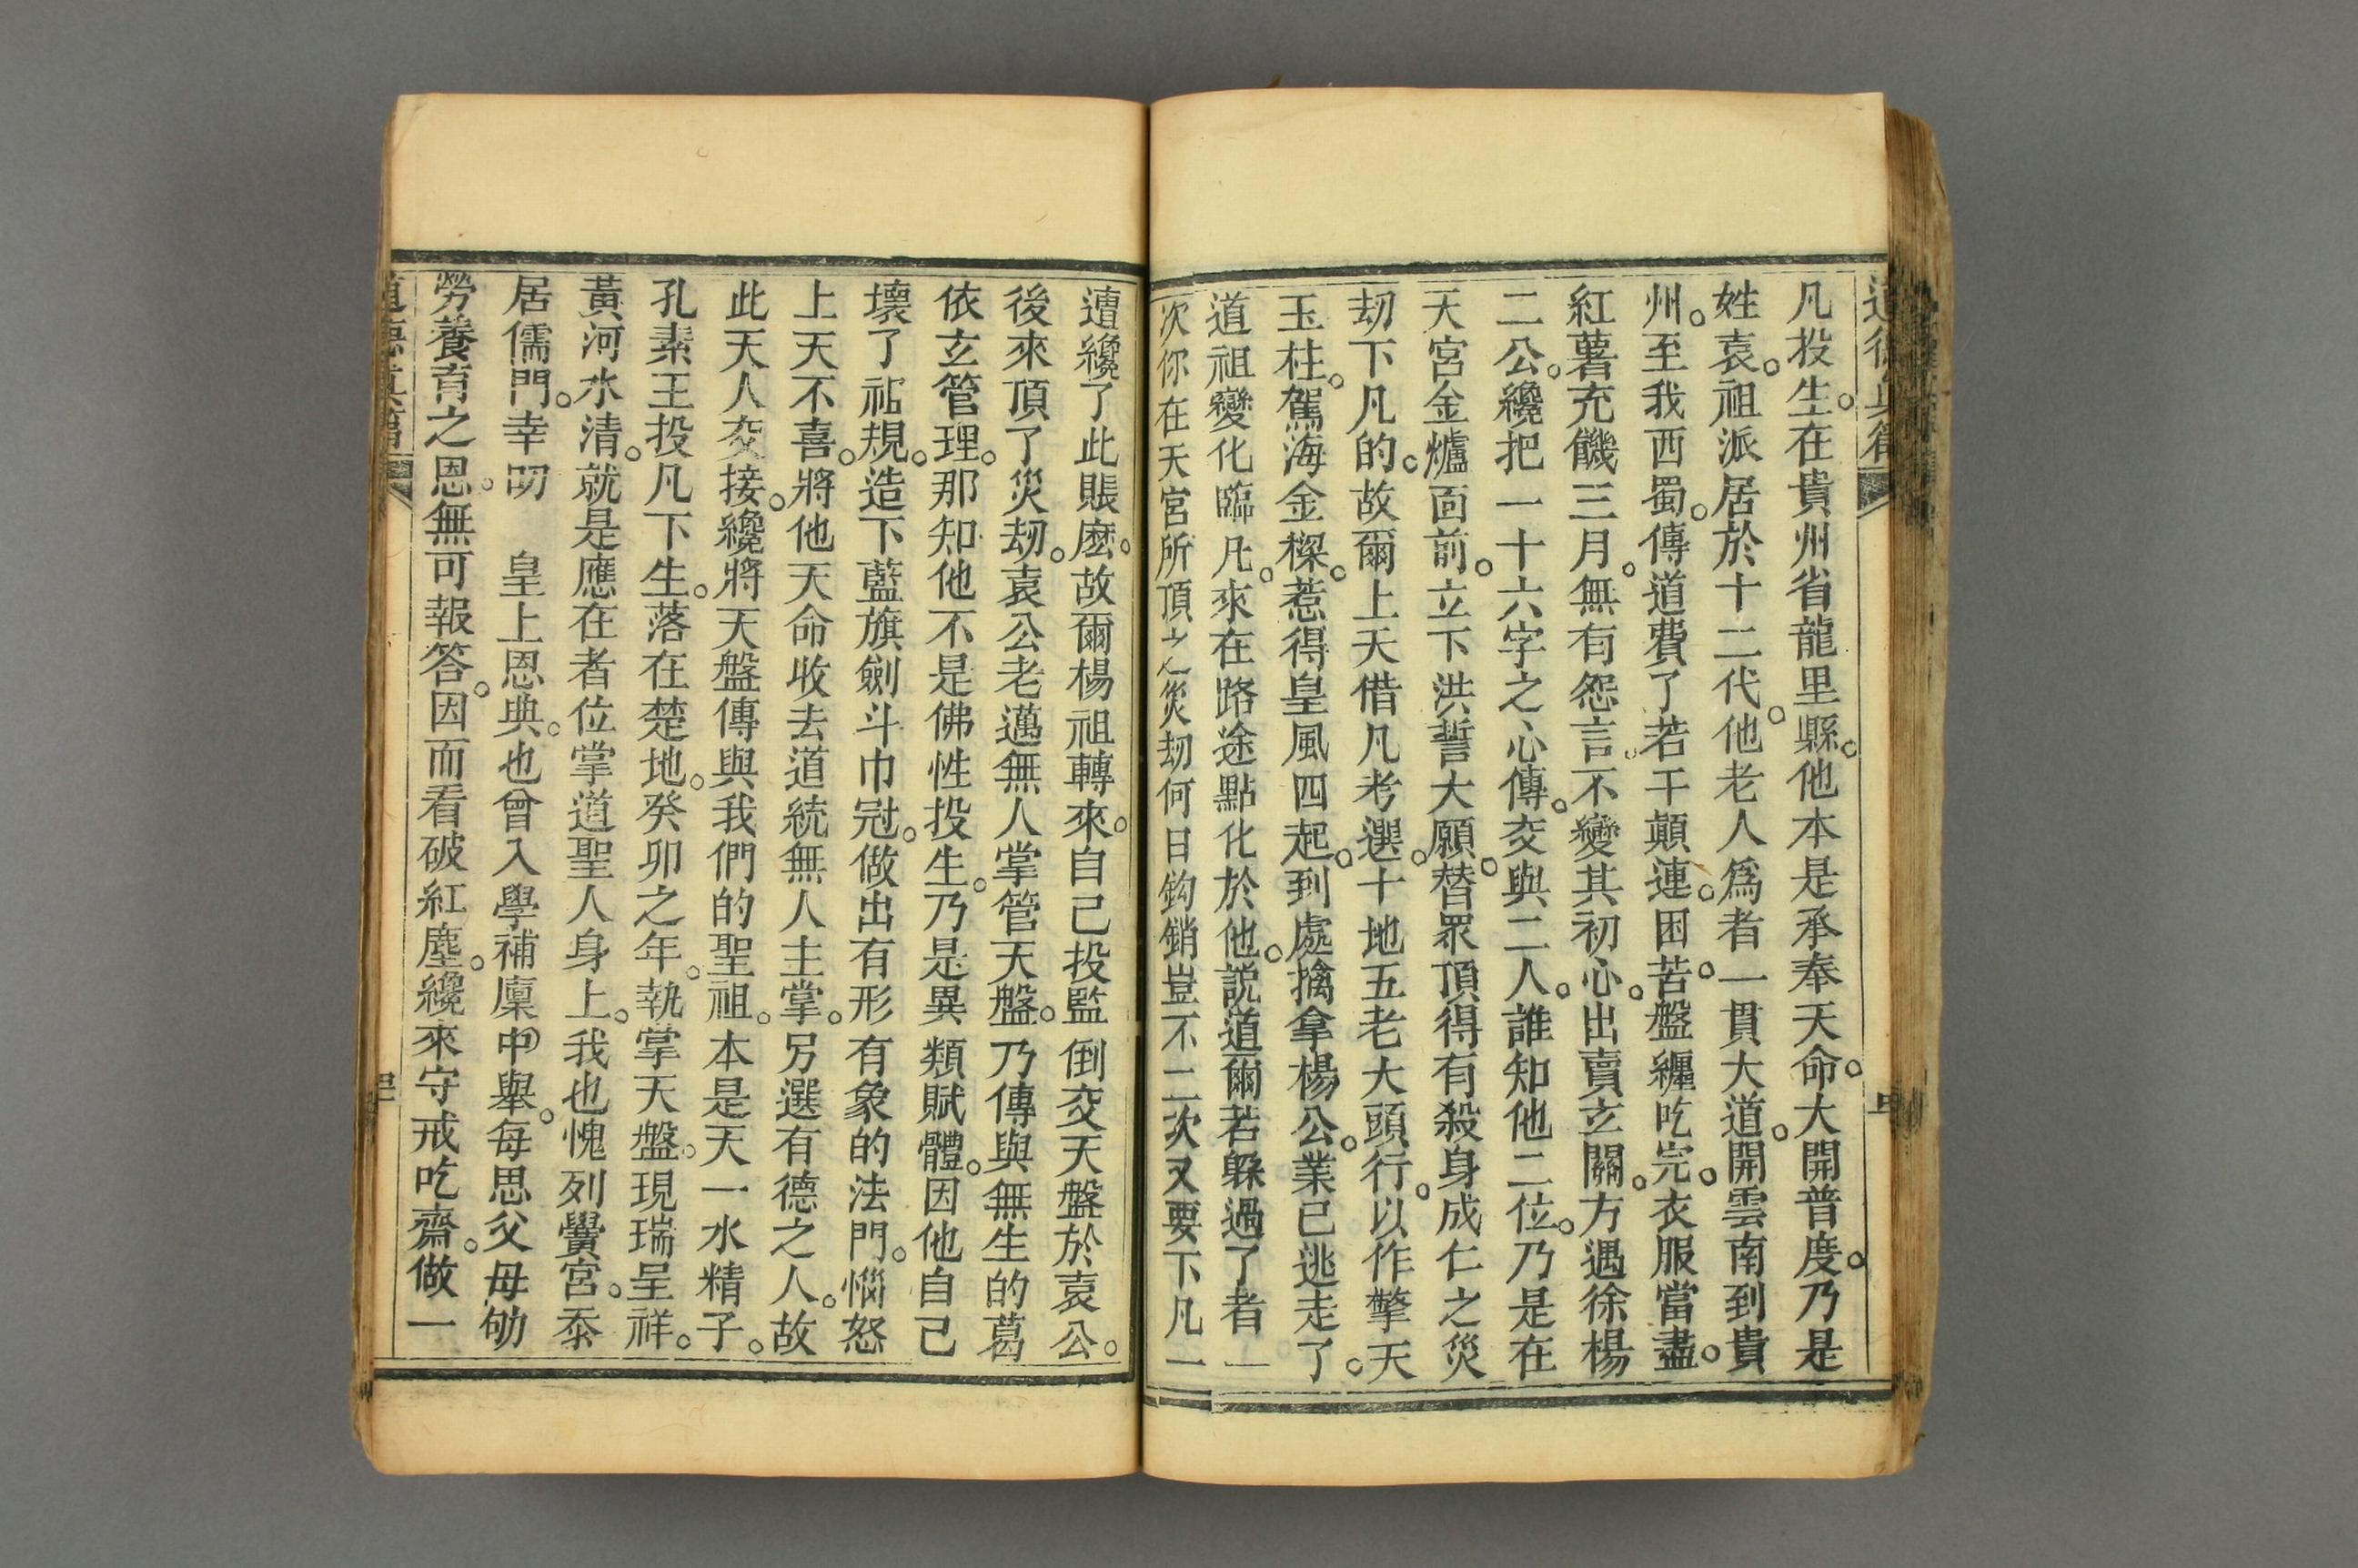 凡投生。在貴州省龍里縣。他本是承奉天命。大開普度。乃是
姓袁。祖派居於十二代。他老人爲者一貫大道。開雲南到貴
州。至我西蜀。傳道費了若干顛連。困苦。盤纏吃完。衣服當盡。
紅薯充饑三月。無有怨言。不變其初心。出賣玄關。方遇徐楊
二公。纔把一十六字之心傳。交與二人。誰知他二位。乃是在
天宮金爐面前。立下洪誓大願。替眾頂得有殺身成仁之災
刼下凡的。故爾上天借凡考選。十地五老大頭行。以作擎天
玉柱。駕海金樑。惹得皇風四起。到處擒拿楊公。業已逃走了。
道祖變化臨凡。來在路途點化於他。説道爾若躲過了者一
次你在天宮所頂之災刼何日鈎銷豈不二次又要下凡一
遭纔了此賬麽。故爾楊祖轉來。自己投監倒交天盤於袁公。
後來頂了災刼。袁公老邁無人掌管天盤。乃傳與無生的葛
依玄管理。那知他不是佛性投生。乃是異類賦體。因他自己
壞了祜規。造下藍旗劍斗巾冠。做出有形有象的法門。惱怒
上天不喜。將他天命收去道統無人主掌。另選有德之人。故
此天人交接。纔將天盤傳與我們的聖祖。本是天一水精子。
孔素王投凡下生。落在楚地。癸卯之年。執掌天盤。現瑞呈祥。
黃河水清。就是應在者位掌道聖人身上。我也愧列黌宮。忝
居儒門。幸叨　皇上恩典。也曾入學補廩中舉。每思父母劬
勞養育之恩。無可報答。因而看破紅塵。纔來守戒吃齋。做一